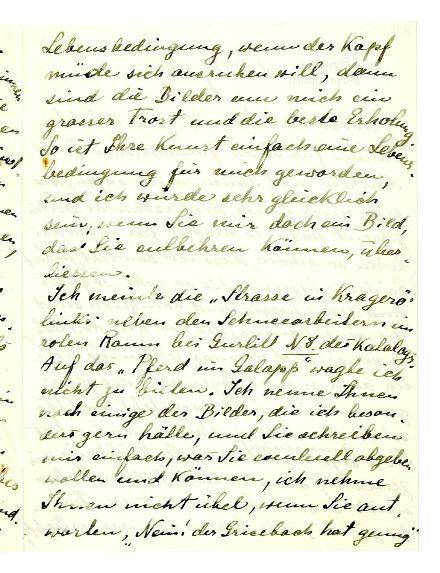 Lebensbedingung, wenn der Kopf
müde sich ausruhen will, dann
sind die Bilder um mich ein
grosser Trost und die beste Erholung.
So ist Ihre Kunst einfach eine Lebens-
bedingung für mich geworden,
und ich würde sehr glücklich
sein, wenn Sie mir doch ein Bild,
das Sie entbehren können, über-
liessen.
Ich meinte die „Strasse in Kragerö"
links neben den Schneearbeitern im
roten Raum bei Gurlitt N 8 des Katalogs.
Auf das „Pferd im Galopp" wagte ich
nicht zu bieten. Ich nenne Ihnen
noch einige der Bilder, die ich beson-
ders gern hätte, und Sie schreiben
mir einfach, was Sie eventuell abgeben
wollen und können, ich nehme
Ihnen nicht übel, wenn Sie ant-
worten, „Nein! der Grisebach hat genug"